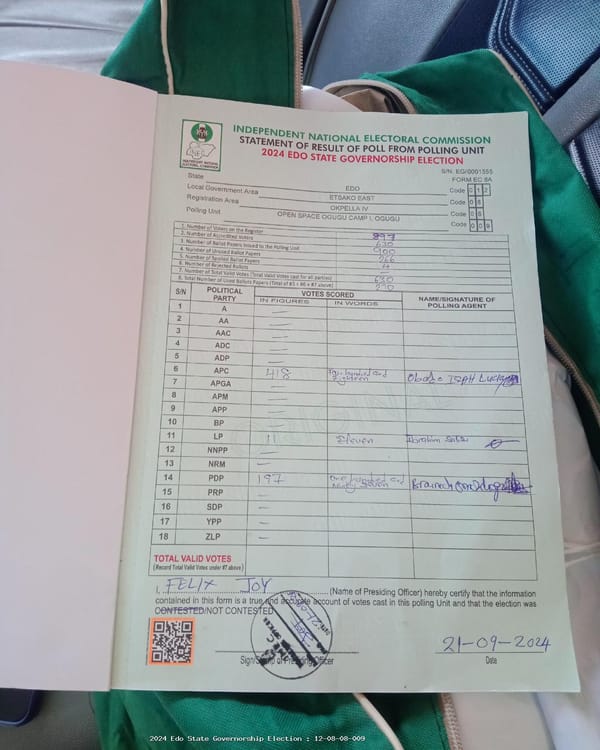 INDEPENDENT NATIONAL ELECTORAL COMMISSION
STATEMENT OF RESULT OF POLL FROM POLLING UNIT
2024 EDO STATE GOVERNORSHIP ELECTION
S/N. EG/0001555
FORM EC 8A
State EDO Code 012
Local Government Area ETSAKO EAST Code 08
Registration Area OKPELLA IV Code 08
Polling Unit OPEN SPACE OGUGU CAMP I, OGUGU Code 009
1. Number of Voters on the Register 897
2. Number of Accredited Voters 630
3. Number of Ballot Papers Issued to the Polling Unit 900
4. Number of Unused Ballot Papers
5. Number of Spoiled Ballot Papers 4
6. Number of Rejected Ballots —
7. Number of Total Valid Votes (Total Valid Votes cast for all parties) 630
8. Total Number of Used Ballots Papers (Total of #5 + #6 + #7 above)
S/N POLITICAL PARTY VOTES SCORED NAME/SIGNATURE OF POLLING AGENT
IN FIGURES IN WORDS
1 A —
2 AA —
3 AAC —
4 ADC —
5 ADP —
6 APC 418 Four hundred and Eighteen
7 APGA —
8 APM —
9 APP —
10 BP —
11 LP 11 Eleven Ibrahim
12 NNPP —
13 NRM —
14 PDP 197 One hundred and Ninety Seven
15 PRP —
16 SDP —
17 YPP —
18 ZLP —
TOTAL VALID VOTES
(Record Total Valid Votes under #7 above)
I, FELIX JOY (Name of Presiding Officer) hereby certify that the information
contained in this form is a true and accurate account of votes cast in this polling Unit and that the election was
CONTESTED/NOT CONTESTED
21-09-2024
Sign/Stamp of Presiding Officer Date
2024 Edo State Governorship Election : 12-08-08-009